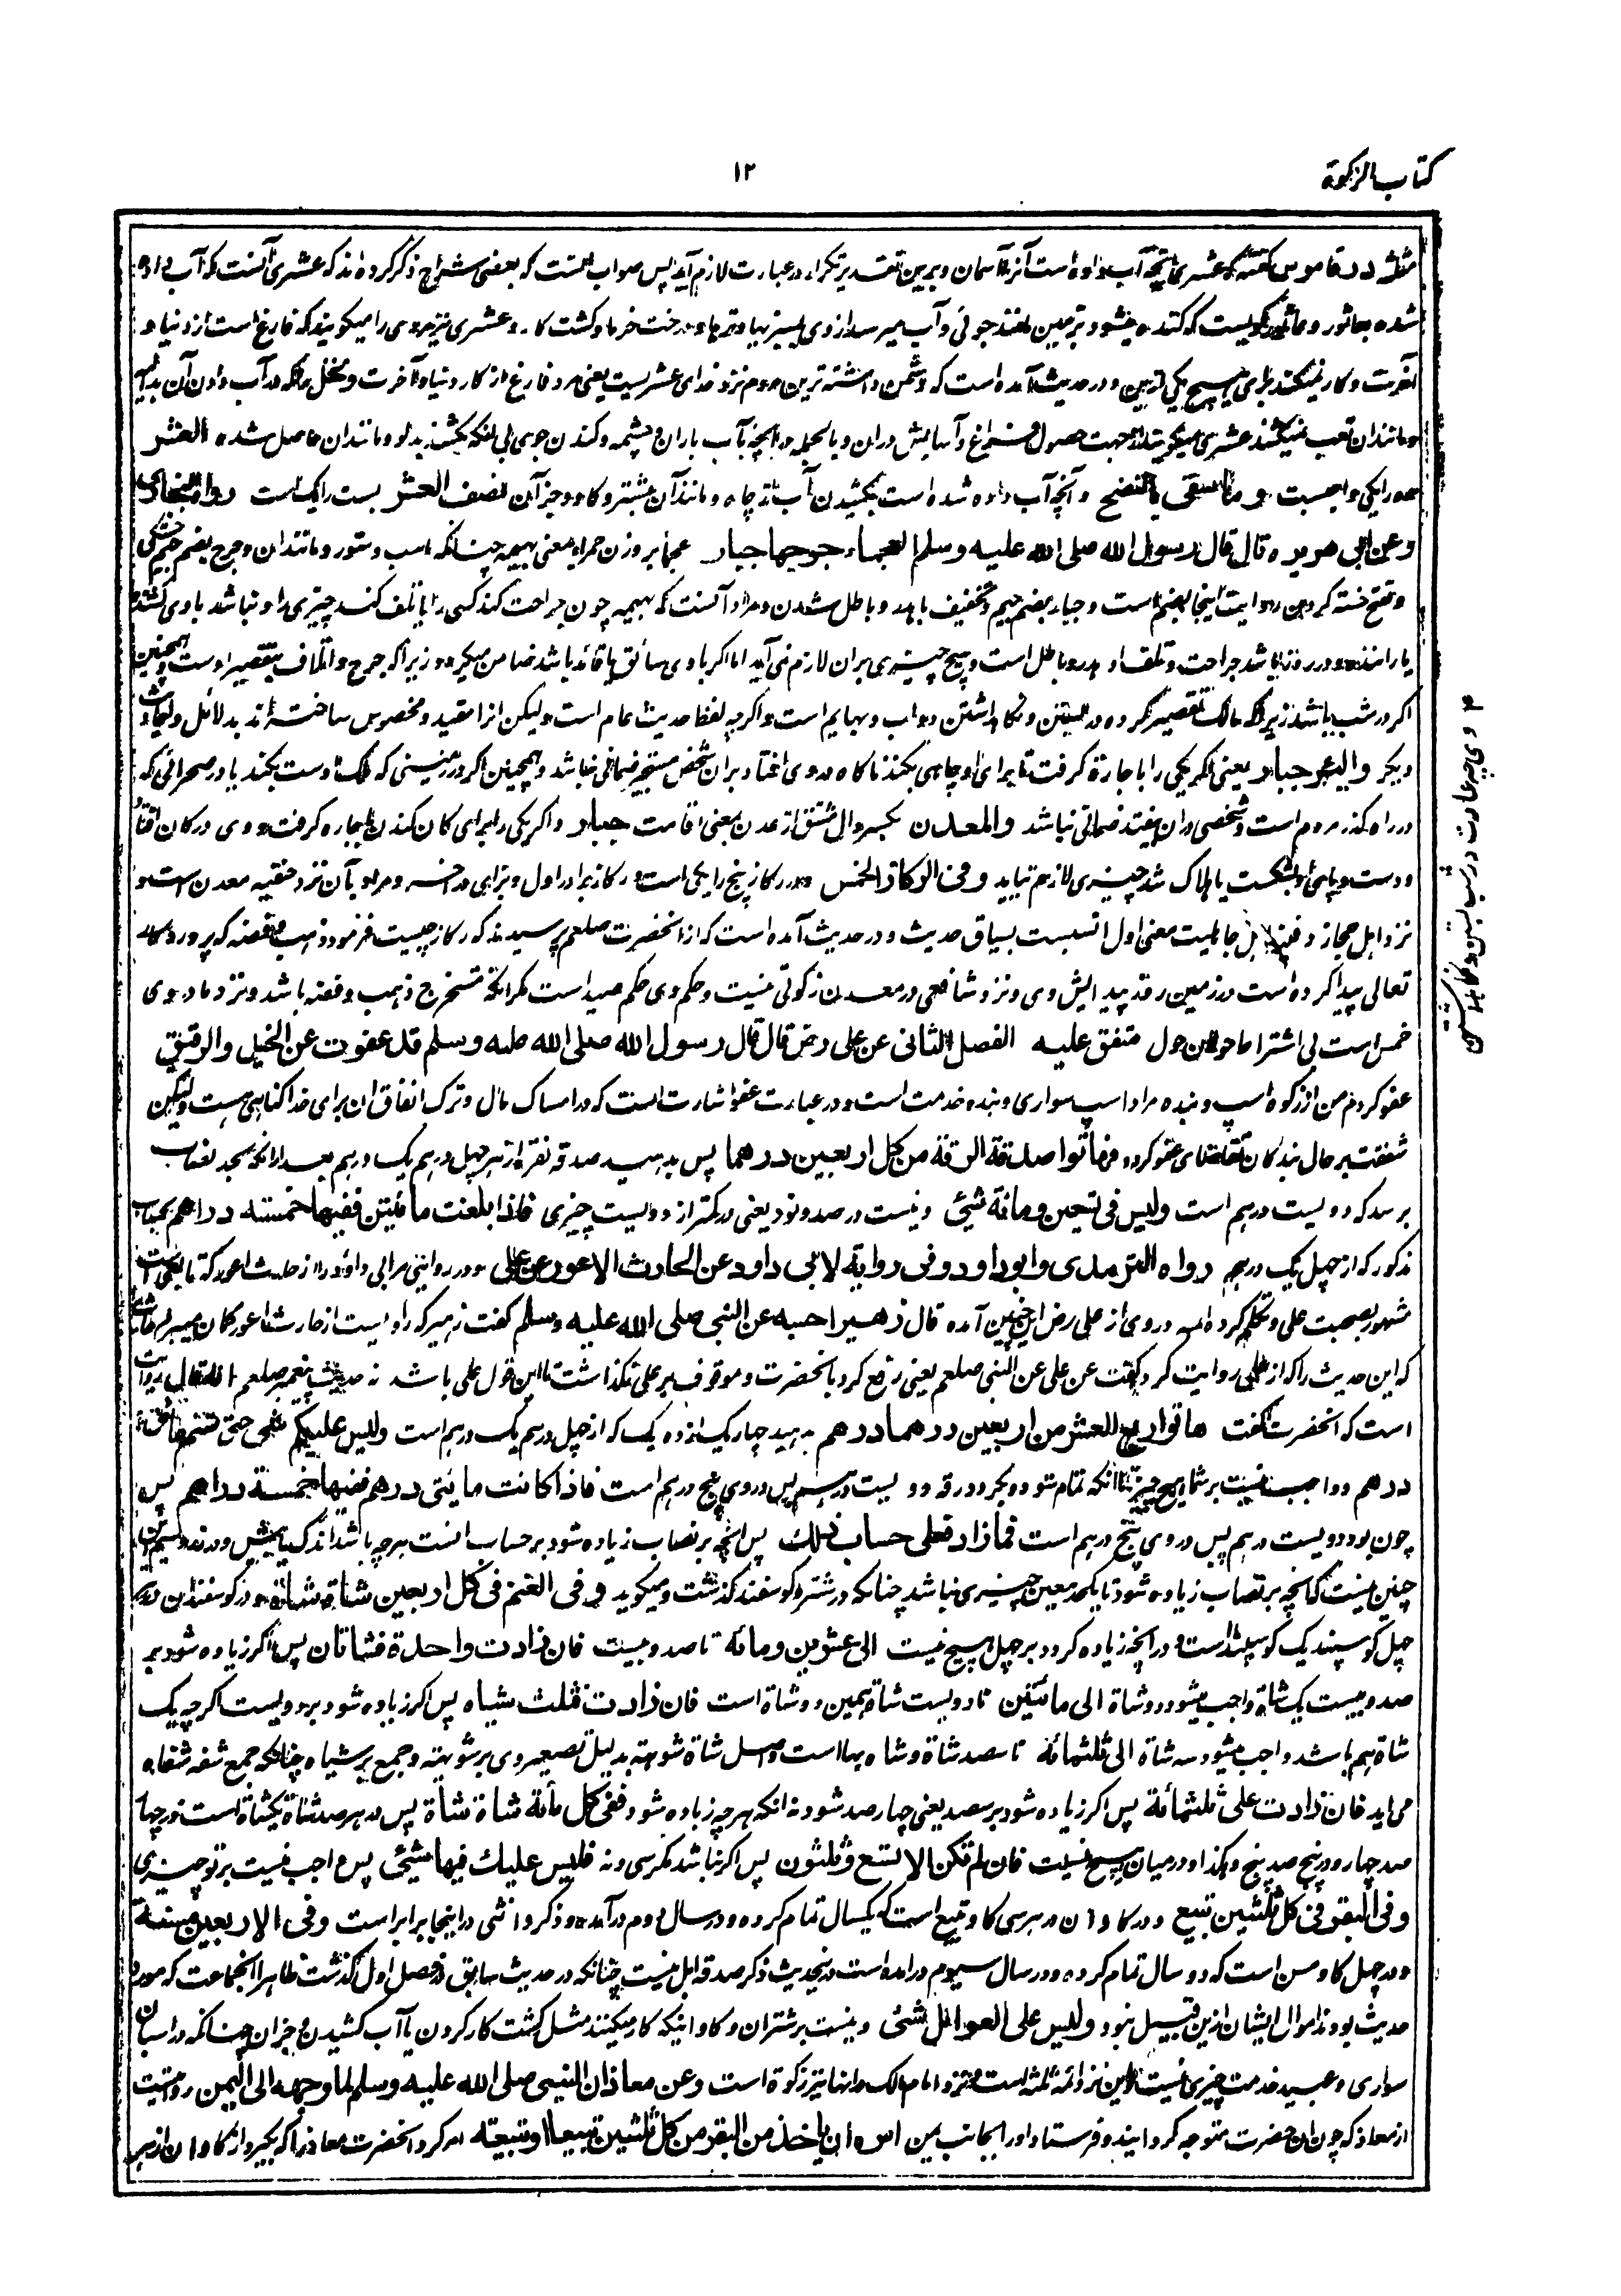 کتاب الزکوة
۱۲
مثلثه در قاموس گفته که عشری آنچه آب داده است آنرا آسمان و برین تقدیر تکرار در عبارت لازم آید پس صواب آنست که بعضی شراح ذکر کرده اند که عشری آنست که آب داده
شده بعاثور و عاثور گویست که کنده میشود بر زمین مانند جوئی و آب میرسد ازوی بسبزیها و تره‌ها و درخت خرما و کشت کار و عشری نیز مردی را میگویند که فارغ است از دنیا و
آخرت و کار نمیکند برای هیچ یکی ازین و در حدیث آمده است که دشمن داشته ترین مردم نزد خدای عشریست یعنی مرد فارغ از کار دنیا و آخرت و نخل را که در آب دادن آن بدلو
و مانند آن تعب نمیکشند عشری میگویند از جهت حصول فراغ و آسایش دران و بالجمله در آنچه بآب باران و چشمه و کندن جوی بی آنکه بکشند بدلو و مانند آن حاصل شده العشر
ده را یکی واجبست و ما سقی بالنضح و آنچه آب داده شده است بکشیدن آب از چاه و مانند آن بشتر و گاو و جز آن نصف العشر بست را یک است رواه البخاری
وعن ابی هریرة قال قال رسول الله صلی الله علیه وسلم العجماء جرحها جبار عجماء بر وزن حمراء بمعنی بهیمه چنانکه اسب و ستور و مانند آن و جرح بضم جیم خستگی
و بفتح خسته کردن روایت اینجا بضم است و جبار بضم جیم و تخفیف با هدر و باطل شدن و مراد آنست که بهیمه چون جراحت کند کسی را یا تلف کند چیزی را و نباشد با وی کشنده
یا راننده و در روز باشد جراحت و تلف او هدر و باطل است و هیچ چیزی بران لازم نمی آید اما اگر با وی سائق یا قائد باشد ضامن میگردد زیرا که جرح و اتلاف بتقصیر اوست و همچنین
اگر در شب باشد زیرا که مالک تقصیر کرده در بستن و نگاهداشتن دواب و بهایم است و اگرچه لفظ حدیث عام است ولیکن آنرا مقید و مخصوص ساخته اند بدلائل و احادیث
دیگر والبئر جبار یعنی اگر یکی را با جاره گرفت تا برای او چاهی بکند ناگاه در وی افتاد بران شخص مستاجر ضمانی نباشد و همچنین اگر در زمینی که ملک اوست بکند یا در صحرائی که
در راه گذر مردم است و شخصی دران بیفتد ضمانی نباشد والمعدن بکسر دال مشتق از عدن بمعنی اقامت جبار و اگر یکی را برای کان کندن باجاره گرفت و وی در کان افتاد
و دست و پای او بشکست یا هلاک شد چیزی لازم نیاید وفی الرکاز الخمس و در رکاز پنج را یکی است رکاز برا در اول و بزای در آخر و مراد بآن نزد حنفیه معدن است و
نزد اهل حجاز دفینه اهل جاهلیت معنی اول انسبست بسیاق حدیث و در حدیث آمده است که از آنحضرت صلعم پرسیدند که رکاز چیست فرمود ذهب و فضه که پروردگار
تعالی پیدا کرده است در زمین روز پیدایش وی و نزد شافعی در معدن زکوتی نیست و حکم وی حکم صید است مگر آنکه مستخرج ذهب و فضه باشد و نزد ما در وی
خمس است بی اشتراط حولان حول متفق علیه الفصل الثانی عن علی رض قال قال رسول الله صلی الله علیه وسلم قد عفوت عن الخیل والرقیق
عفو کردم من از زکوة اسپ و بنده مراد اسپ سواری و بنده خدمت است و در عبارت عفو اشارت است که در امساک مال و ترک انفاق ان برای خدا گناهی هست ولیکن
شفقت بر حال بندگان تقاضای عفو کرد فهاتوا صدقة الرقة من کل اربعین درهما پس بدهید صدقه نقره از هر چهل درهم یک درهم بعد ازانکه بحد نصاب
برسد که دویست درهم است ولیس فی تسعین ومائة شیئ و نیست در صد و نود یعنی در کمتر از دویست چیزی فاذا بلغت مائتین ففیها خمسة دراهم بحساب
مذکور که از چهل یک درهم رواه الترمذی وابو داود وفی روایة لابی داود عن الحارث الاعور عن علی و در روایتی مر ابی داؤد را از حارث اعور که تابعی است
مشهور بصحبت علی و تکلم کرده اند در وی از علی رض این چنین آمده قال زهیر احسبه عن النبی صلی الله علیه وسلم گفت زهیر که راویست از حارث اعور گمان میبرم حارث
که این حدیث را که از علی روایت کرد گفت عن علی عن النبی صلعم یعنی رفع کرد بآنحضرت و موقوف بر علی نگذاشت تا این قول علی باشد نه حدیث پیغمبر صلعم انه قال روایت
است که آنحضرت گفت هاتوا ربع العشر من اربعین درهما درهم بدهید چهار یک از ده یک که از چهل درهم یک درهم است ولیس علیکم شیء حتی تتم مائتی
درهم و واجب نیست بر شما هیچ چیز تا آنکه تمام شود و بگردد رقه دو یست درهم پس در وی پنج درهم است فاذا کانت مائتی درهم ففیها خمسة دراهم پس
چون بود دویست درهم پس در وی پنج درهم است فمازاد فعلی حساب ذلک پس آنچه بر نصاب زیاده شود بر حساب آنست هر چه باشد اندک یا بیش و در نقد و سیم این
چنین نیست که آنچه بر نصاب زیاده شود تا یکحد معین چیزی نباشد چنانکه در شتر و گوسفند گذشت و میگوید وفی الغنم فی کل اربعین شاة شاة و در گوسفندان در هر
چهل گوسپند یک گوسپند است و در آنچه زیاده گردد بر چهل هیچ نیست الی عشرین ومائة تا صد و بیست فان زادت واحدة فشاتان پس اگر زیاده شود بر
صد و بیست یک شاة واجب میشود دو شاة الی مائتین تا دویست شاة همین دو شاة است فان زادت فثلث شیاه پس اگر زیاده شود بر دویست اگرچه یک
شاة هم باشد واجب میشود سه شاة الی ثلثمائة تا سصد شاة و شاه بها است و اصل شاة شوهة بدلیل تصغیر وی بر شویهة و جمع بر شیاه چنانکه جمع شفه شفاه
می آید فان زادت علی ثلثمائة پس اگر زیاده شود بر سصد یعنی چهار صد شود نه آنکه هر چه زیاده شود ففی کل مائة شاة شاة پس در هر صد شاة یکشاة است در چهار
صد چهار و در پنج صد پنج و هکذا و در میان هیچ نیست فان لم تکن الا تسع وثلثون پس اگر نباشد مگر سی و نه فلیس علیک فیها شیئ پس واجب نیست بر تو چیزی
وفی البقر فی کل ثلثین تبیع و در گاوان در هر سی گاو تبیع است که یکسال تمام کرده و در سال دوم در آمده و ذکر و انثی در اینجا برابر است وفی الاربعین مسنة
و در چهل گاو مسن است که دو سال تمام کرده و در سال سیوم در آمده است در نیحدیث ذکر صدقه ابل نیست چنانکه در حدیث سابق در فصل اول گذشت ظاهرا آنجماعت که مورد
حدیث بودند اموال ایشان ازین قبیل نبود ولیس علی العوامل شئ و نیست بر شتران و گاوانیکه کار میکنند مثل کشت کار کردن یا آب کشیدن و جز آن چنانکه در اسپان
سواری و عبید خدمت چیزی نیست و این نزد ائمه ثلثه است و نزد امام مالک در انها نیز زکوة است وعن معاذ ان النبی صلی الله علیه وسلم لما وجهه الی الیمن روایت
از معاذ که چون آن حضرت متوجه گردانید و فرستاد او را بجانب یمن امره ان یاخذ من البقر من کل ثلثین تبیعا او تبیعة امر کرد آنحضرت معاذ را که بگیرد از گاوان از هر